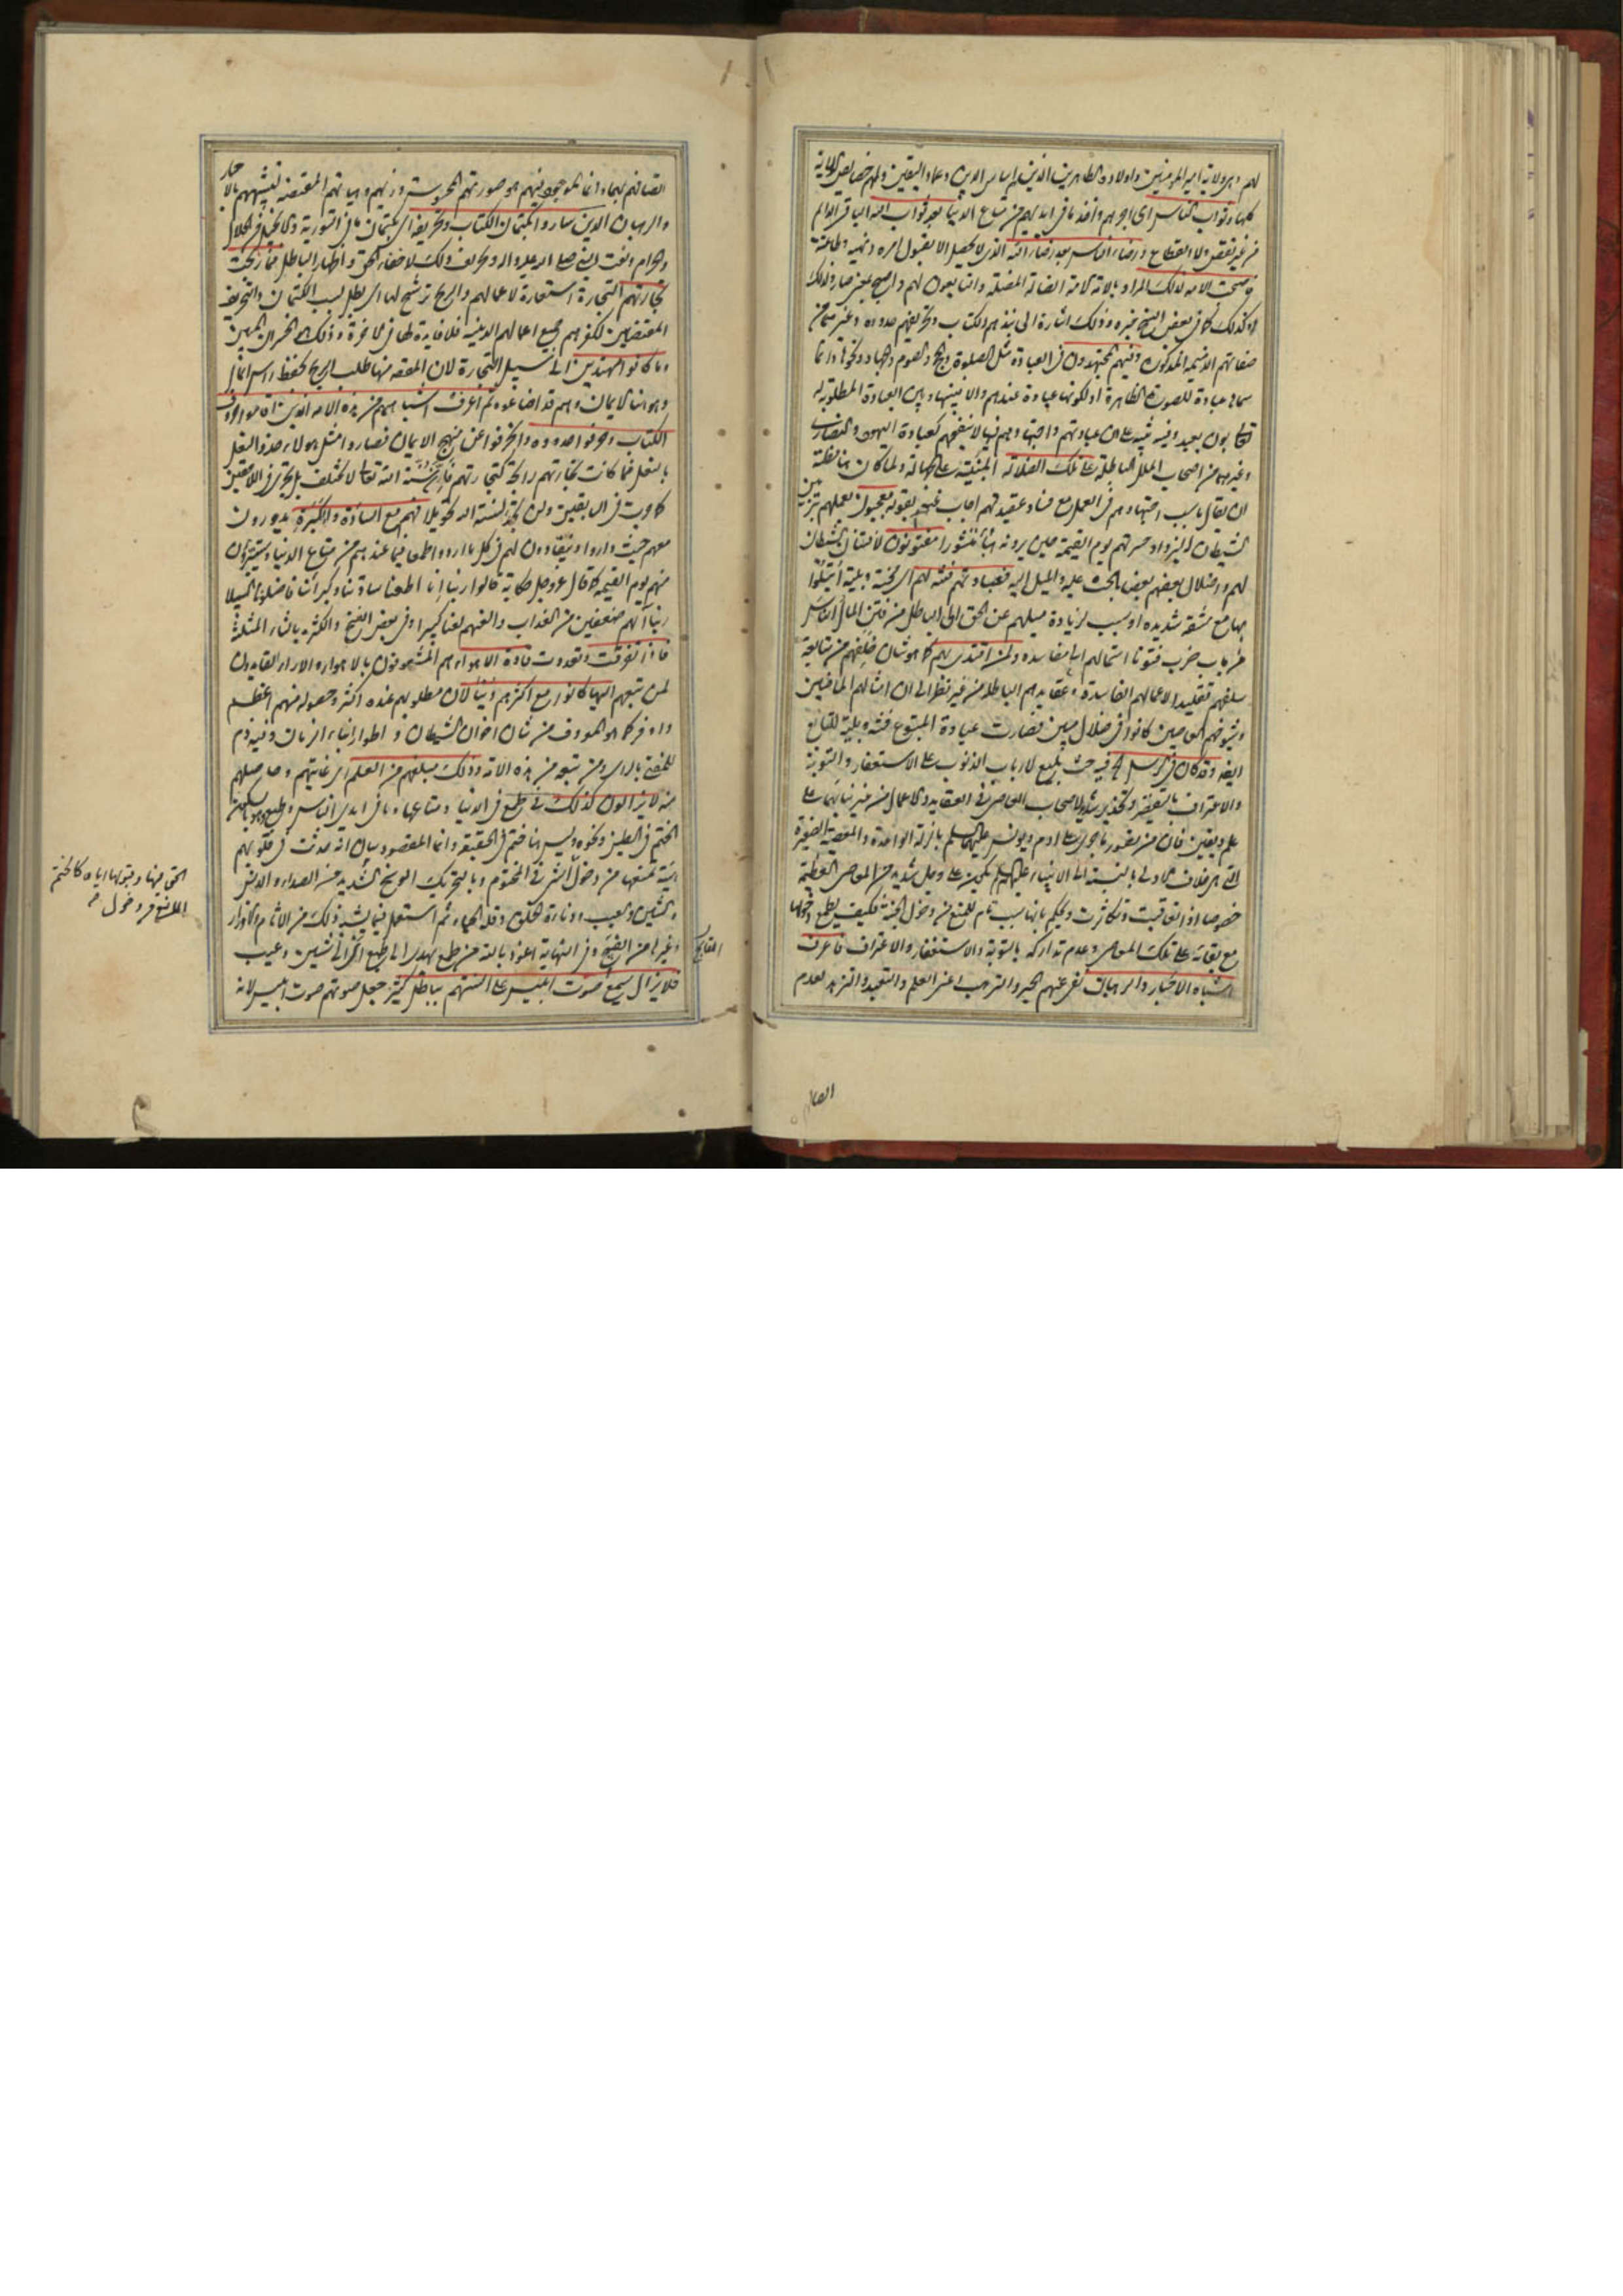 لهم وهى ولاية امير المؤمنين واولاده الطاهرين الذين هم اساس الدين وعماد اليقين ولهم خصايص الولاية
كلها وثواب الناس اى اجرهم واخذ ما فى ايديهم من متاع الدنيا بعد ثواب الله الباقى الدائم
من غير نقص ولا انقطاع ورضاء الناس بعد رضاء الله الذى لا يحصل الا بقبول امره ونهيه وطاعته
فاصبحت الامة لذلك المراد بالامة الامة الضالة المضلة والتابعون لهم واصبح بمعنى صار ولذلك
او كذلك كما فى بعض النسخ خبره وذلك اشارة الى نبذهم الكتاب وتحريفهم حدوده وغير
صفاتهم الذميمة المذكورة وفيهم المجتهدون فى العبادة مثل الصلوة والحج والصوم والجهاد ونحوها وانما
سماها عبادة للصورة الظاهرة او لكونها عبادة عندهم والا فبينها وبين العبادة المطلوبة له
تعالى بون بعيد وفيه تنبيه على ان عبادتهم واجتهادهم فيها لا ينفعهم كعبادة اليهود والنصارى
وغيرهما من اصحاب الملل الباطلة على تلك الضلالة المبنية على الجهالة ولما كان هنا مظنة
ان يقال ما سبب اجتهادهم فى العمل مع فساد عقيدتهم اجاب عنه بقوله معجبون بعملهم بتزيين
الشيطان ليزداد حسرتهم يوم القيمة حين يرونه هباء منثورا مفتونون لافتتان الشيطان
لهم واضلال بعضهم بعضا بالحث عليه والميل اليه فعبادتهم فتنة لهم اى محنة وبلية ابتلوا
بها مع مشقة شديدة او سبب لزيادة ميلهم عن الحق الى الباطل من فتن المال الناس
من باب ضرب فتونا استمالهم ولمن اقتدى بهم كما هو شان خلفهم من متابعة
سلفهم تقليدا لاعمالهم الفاسدة وعقايدهم الباطلة من غير نظر الى ان امثالهم الماضين
وشيوخهم العاصين كانوا فى ضلال مبين فصارت عبادة المتبوع فتنة وبلية للتابع
ايضا وقد كان فى الرسل فيه حث بليغ لارباب الذنوب على الاستغفار والتوبة
والاعتراف بالتقصير وتحذير شديد لاصحاب النقاص فى العقايد والاعمال من غير بنائهما على
علم ويقين فان من تصور ما جرى على ادم ويونس عليهما السلم بالزلة الواحدة والمعصية الصغيرة
التى هى خلاف الاولى بالنسبة الى الانبياء عليهم السلم يكون على وجل شديد من المعاصى العظيمة
خصوصا اذا تعاقبت وتكاثرت ويحكم بانها سبب تام للمنع من دخول الجنة فكيف يطمع دخولها
مع بقائه على تلك المعاصى وعدم تداركه بالتوبة والاستغفار والاعتراف فاعرف
اشباه الاحبار والرهبان نفى عنهم الحبر والترهب اعنى العلم والتعبد والتزهد لعدم
العالم
اتصافهم بهما وانما الموجود فيهم هو صورتهم المحسوسة وزيهم وهياتهم المقتضية لتشبههم بالاحبار
والرهبان الذين ساروا بكتمان الكتاب وتحريفه اى بكتمان ما فى التورية والانجيل من الحلال
والحرام ونعت النبى صلى الله عليه واله وتحريف ذلك لاخفاء الحق واظهار الباطل فما ربحت
تجارتهم التجارة استعارة لاعمالهم والربح ترشيح لها اى بطل بسبب الكتمان والتحريف
المقتضيين لكفرهم جميع اعمالهم الدينية فلا فايدة لها فى الاخرة وذلك هو الخسران المبين
وما كانوا مهتدين الى سبيل التجارة لان المقصد منها طلب الربح بحفظ راس المال
وهو هنا الايمان وهم قد اضاعوه ثم اعرف اشباههم من هذه الامة الذين اقاموا حروف
الكتاب وحرفوا حدوده وانحرفوا عن منهج الايمان فصاروا مثل هؤلاء حذو النعل
بالنعل فما كانت تجارتهم رابحة كتجارتهم فان سنة الله تعالى لا تختلف بل تجرى فى اللاحقين
كما جرت فى السابقين ولن تجد لسنة الله تحويلا فهم مع السادة والكبرة يدورون
معهم حيث داروا وينقادون لهم فى كل ما ارادوا طمعا فيما عندهم من متاع الدنيا ويتبرؤن
منهم يوم القيمة كما قال عز وجل حكاية قالوا ربنا انا اطعنا سادتنا وكبراءنا فاضلونا السبيلا
ربنا آتهم ضعفين من العذاب والعنهم لعنا كبيرا وفى بعض النسخ والكثرة بالثاء المثلثة
فاذا تفرقت وتعددت قادة الاهواء هم المشعوفون بالاهواء والاراء القايدون
لمن تبعهم اليها كانوا مع اكثرهم دنيا لان مطلوبهم عنده اكثر وحصوله منهم اعظم
واوفر كما هو المعروف من شان اخوان الشيطان و اطوار ابناء الزمان وفيه ذم
للمفتى بالراى ومن تبعه من هذه الامة وذلك مبلغهم من العلم اى غايتهم وحاصلهم
منه لا يزالون كذلك فى طمع فى الدنيا ومتاعها وما فى ايدى الناس وطبع وهو بالسكون
الختم فى الطين ونحوه وليس هنا ختم فى الحقيقة وانما المقصود بيان انه حدثت فى قلوبهم
هيئة تمنعها من دخول الحق فيها وقبولها اياه كالختم المانع من دخول الشىء فى المختوم وبالتحريك الوسخ الشديد من الصداء والدنس
والشين والعيب ودناءة الخلق وقلة الحياء ثم استعمل فيما يشبه ذلك من الاثام والاوزار
وغيرها من القبايح وفى النهاية اعوذ بالله من طمع يهدى الى طبع اى الى شين وعيب
فلا يزال يسمع صوت ابليس على السنتهم بباطل كثير جعل صوتهم صوت ابليس لانه